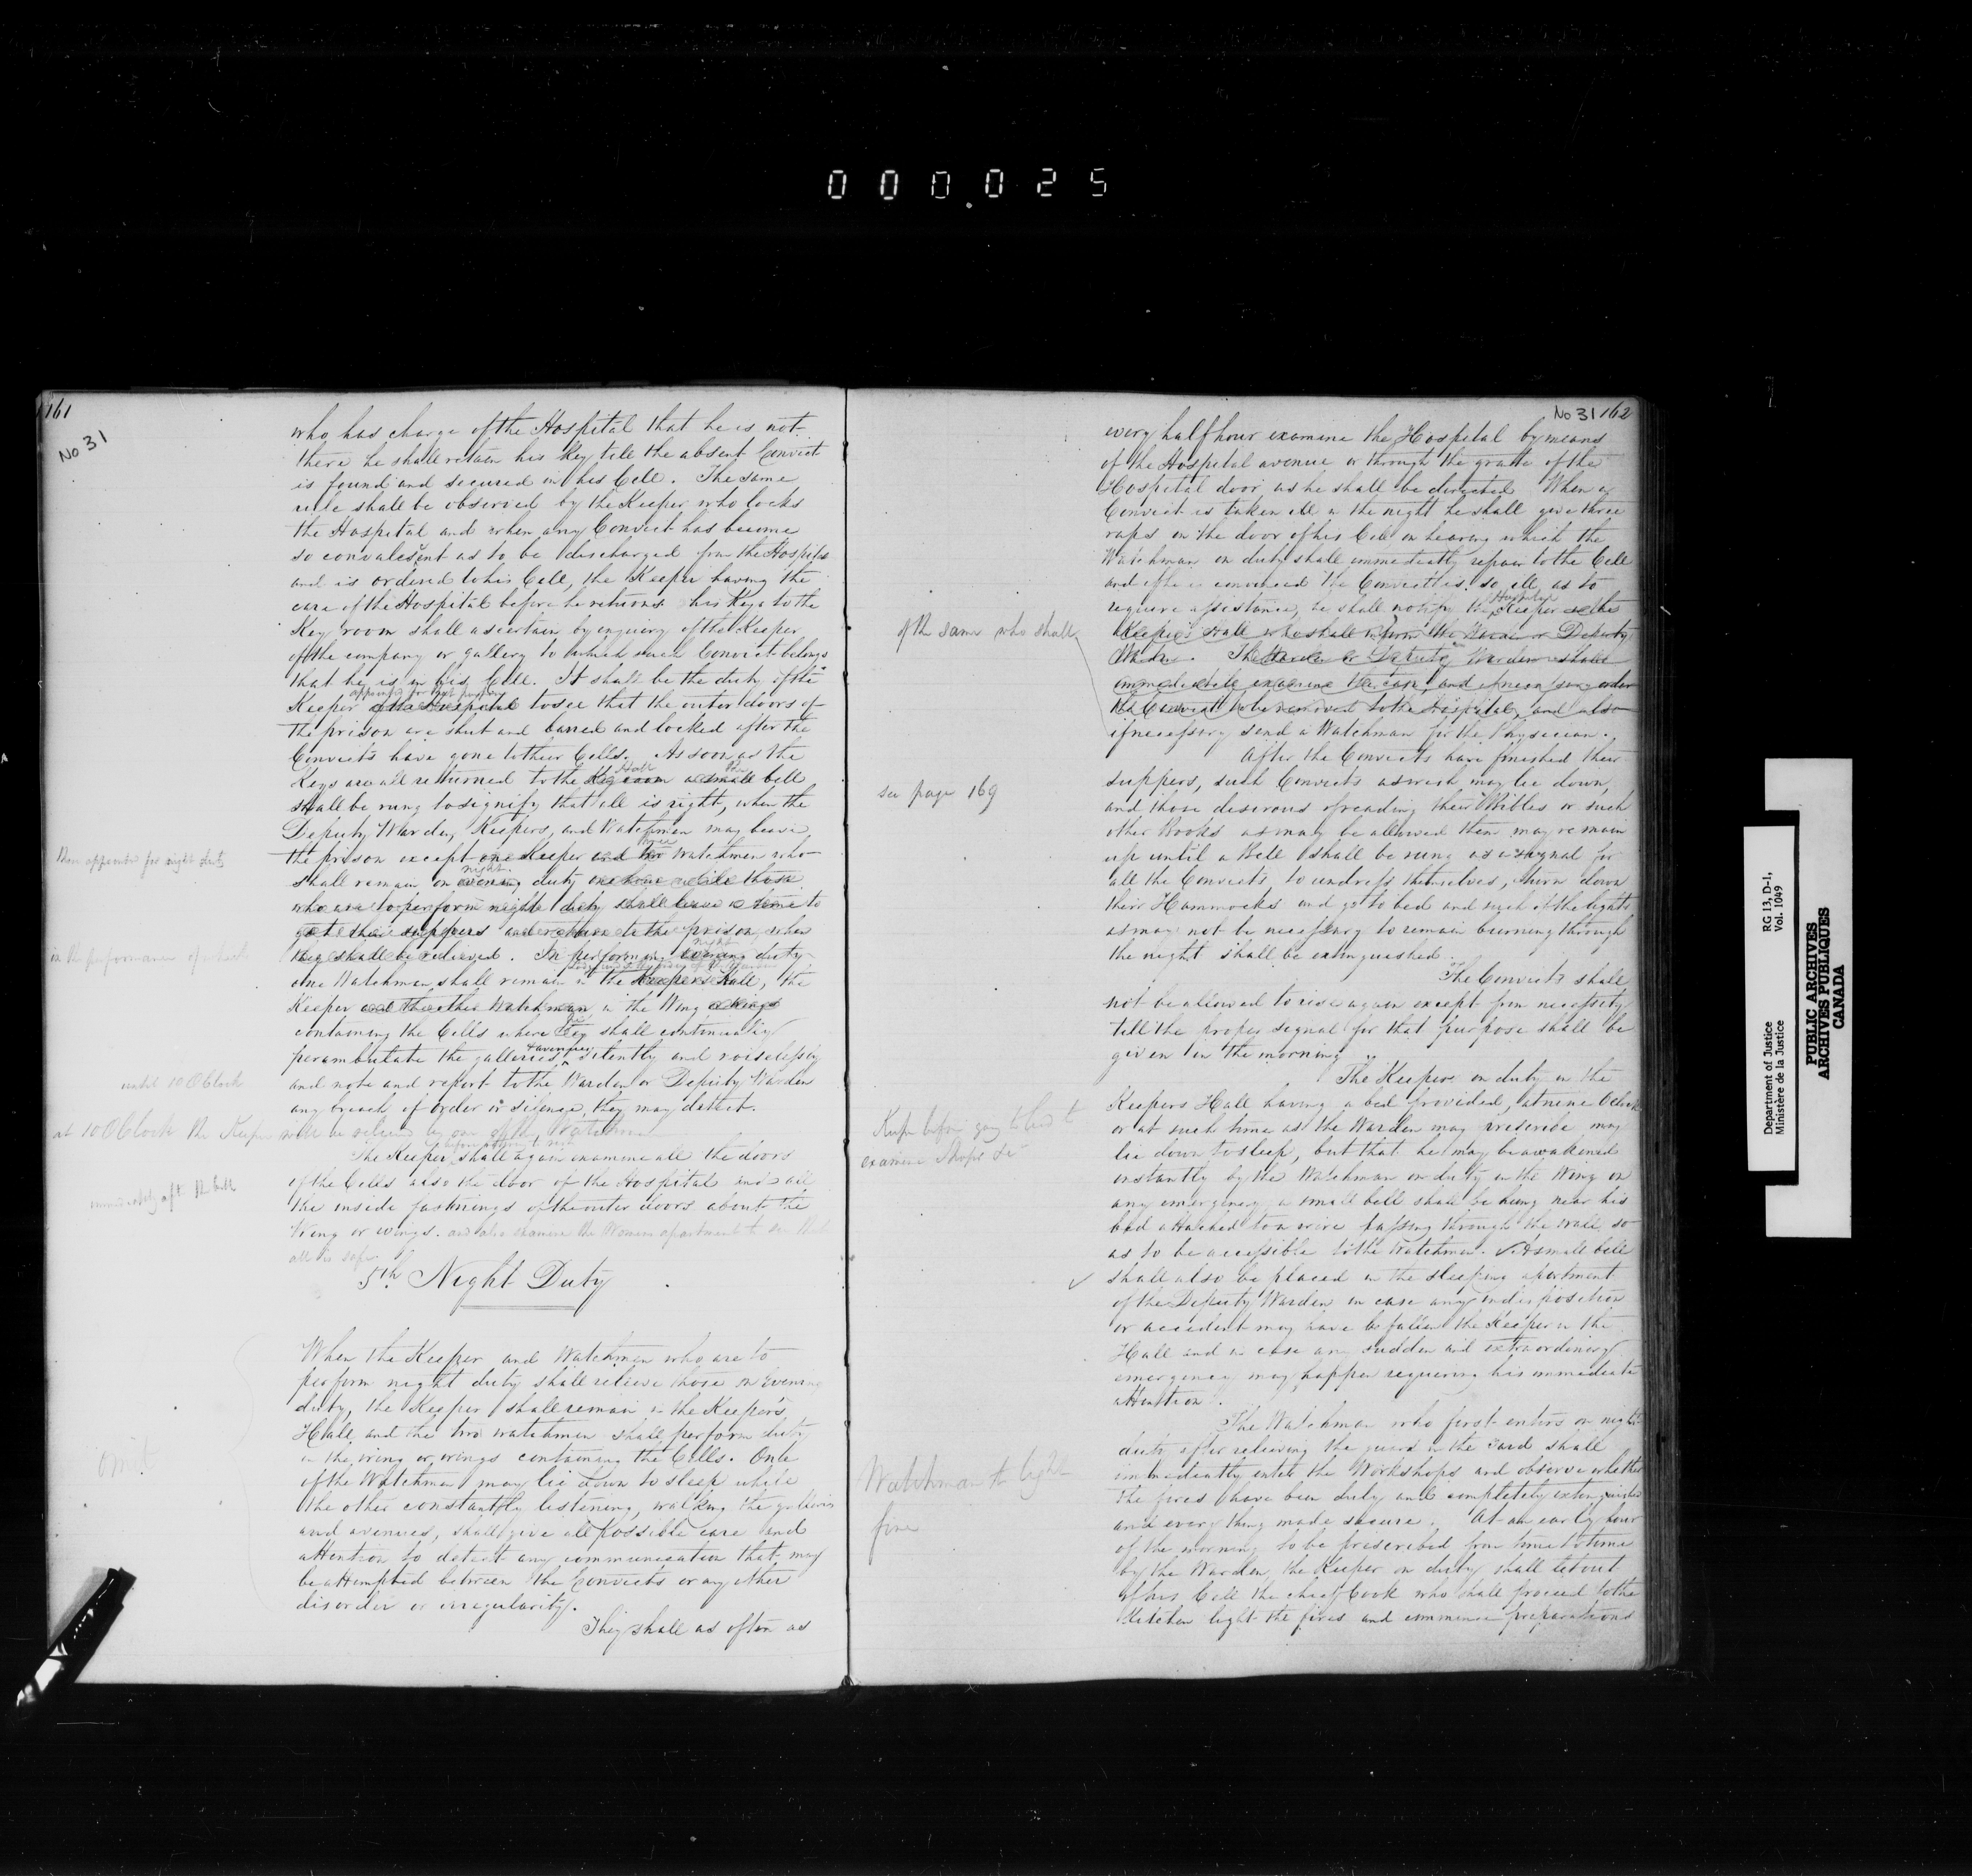 000.025
161
No 31
who has charge of the Hospital that he is not
there he shall retain his key till the absent Convict
is found and secured in his Cell. The same
rule shall be observed by the Keeper who locks
the Hospital and when any Convict has become
so convalescent as to be discharged from the Hospital
and is ordered to his Cell, the Keeper having the
care of the Hospital before he returns his Keys to the
Key room shall ascertain by enquiry of the Keeper
of the company or gallery to which such Convict belongs
that he is in his Cell. It shall be the duty of the
appointed for that purpose
Keeper of the Hospital to see that the outer doors of
the prison are shut and barred and locked after the
Convicts have gone to their Cells. As soon as the
Hall the
Keys are all returned to the Key room a small bell
shall be rung to signify that all is right, when the
Deputy Warden, Keepers, and Watchmen may leave
three
the prison except one Keeper and two Watchmen who
then appointed for night duty
night
shall remain on evening duty one hour while those
who are to perform night duty shall leave a time to
get their suppers and return to the prison when
night
they shall be relieved. In performing evening duty
in the performance of which
one Watchman shall remain in the Keepers Hall, the
Keeper and the other Watchman in the Wing or Wings
he
containing the Cells where they shall continually
& avenues
perambulate the galleries silently and noiselessly
and note and report to the Warden or Deputy Warden
until 10 OClock
any breach of order or silence, they may detect.
at 10 OClock the Keeper will be relieved by one of the Watchmen
The Keeper shall again examine all the doors
of the Cells also the door of the Hospital and all
immediately aft the bell
the inside fastnings of the outer doors about the
Wing or wings. and also examine the Womens apartment to see that
all is safe
5th Night Duty
When the Keeper and Watchmen who are to
perform night duty shall relieve those on Evening
duty, the Keeper shall remain in the Keeper's
Hall and the two watchmen shall perform duty
in the wing or wings containing the Cells. One
Omit
of the Watchmen may lie down to sleep while
the other constantly listening, walking the galleries
and avenues, shall give all possible care and
attention to detect any communication that may
be attempted between the Convicts or any other
disorder or irregularity.
They shall as often as
No 31 162
every half hour examine the Hospital by means
of the Hospital avenue or through the grate of the
Hospital door as he shall be directed When a
Convict is taken ill in the night he shall give three
raps on the door of his Cell on hearing which the
Watchman on duty shall immediately repair to the Cell
and if he is convinced the Convict is so ill as to
Hospital
require assistance, he shall notify the Keeper in the
of the same who shall
Keeper's Hall who shall inform the Warden or Deputy
Warden. The Warden or Deputy Warden shall
immediately examine the case, and if necessary order
the Convict to be removed to the Hospital, and also
if necessary send a Watchman for the Physician.
After the Convicts have finished their
suppers, such Convicts as wish may lie down,
see page 169
and those desirous of reading their Bibles or such
other Books as may be allowed them may remain
up until a Bell shall be rung as a signal for
all the Convicts to undress themselves, turn down
their Hammocks and go to bed and such of the lights
as may not be necessary to remain burning through
the night shall be extinguished.
The Convicts shall
not be allowed to rise again except from necessity
till the proper signal for that purpose shall be
given in the morning
The Keepers on duty in the
Keepers Hall having a bed provided, at nine OClock
Keeper before going to bed to
examine Shops &c
or at such time as the Warden may prescribe may
lie down to sleep, but that he may be awakened
instantly by the Watchman on duty in the Wing on
any emergency a small bell shall be hung near his
bed attached to a wire passing through the wall so
as to be accessible to the Watchman. A small bell
shall also be placed in the sleeping apartment
of the Deputy Warden in case any indisposition
or accident may have befallen the Keeper in the
Hall and in case any sudden and extraordinary
emergency may happen requiring his immediate
attention.
The Watchman who first enters on night
duty after relieving the guard in the Yard shall
immediately enter the Workshops and observe whether
Watchman to light
fires
the fires have been duly and completely extinguished
and every thing made secure. At an early hour
of the morning to be prescribed from time to time
by the Warden, the Keeper on duty shall let out
of his Cell the chief Cook who shall proceed to the
Kitchen light the fires and commence preparations
Department of Justice
Ministère de la Justice
RG 13, D-1,
Vol. 1049
PUBLIC ARCHIVES
ARCHIVES PUBLIQUES
CANADA